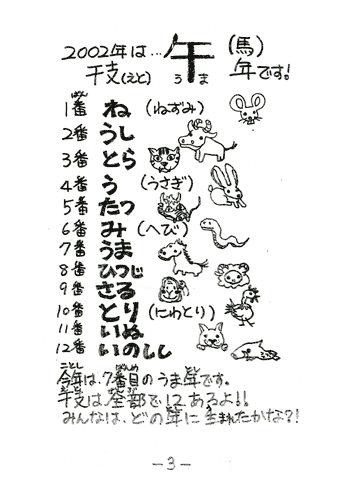 2002年は…午(馬)
干支(えと) うま 年です!
1番 ね (ねずみ)
2番 うし
3番 とら
4番 う (うさぎ)
5番 たつ
6番 み (へび)
7番 うま
8番 ひつじ
9番 さる
10番 とり (にわとり)
11番 いぬ
12番 いのしし
今年は、7番目のうま年です。
干支は全部で12あるよ!!
みんなは、どの年に生まれたかな?!
-3-